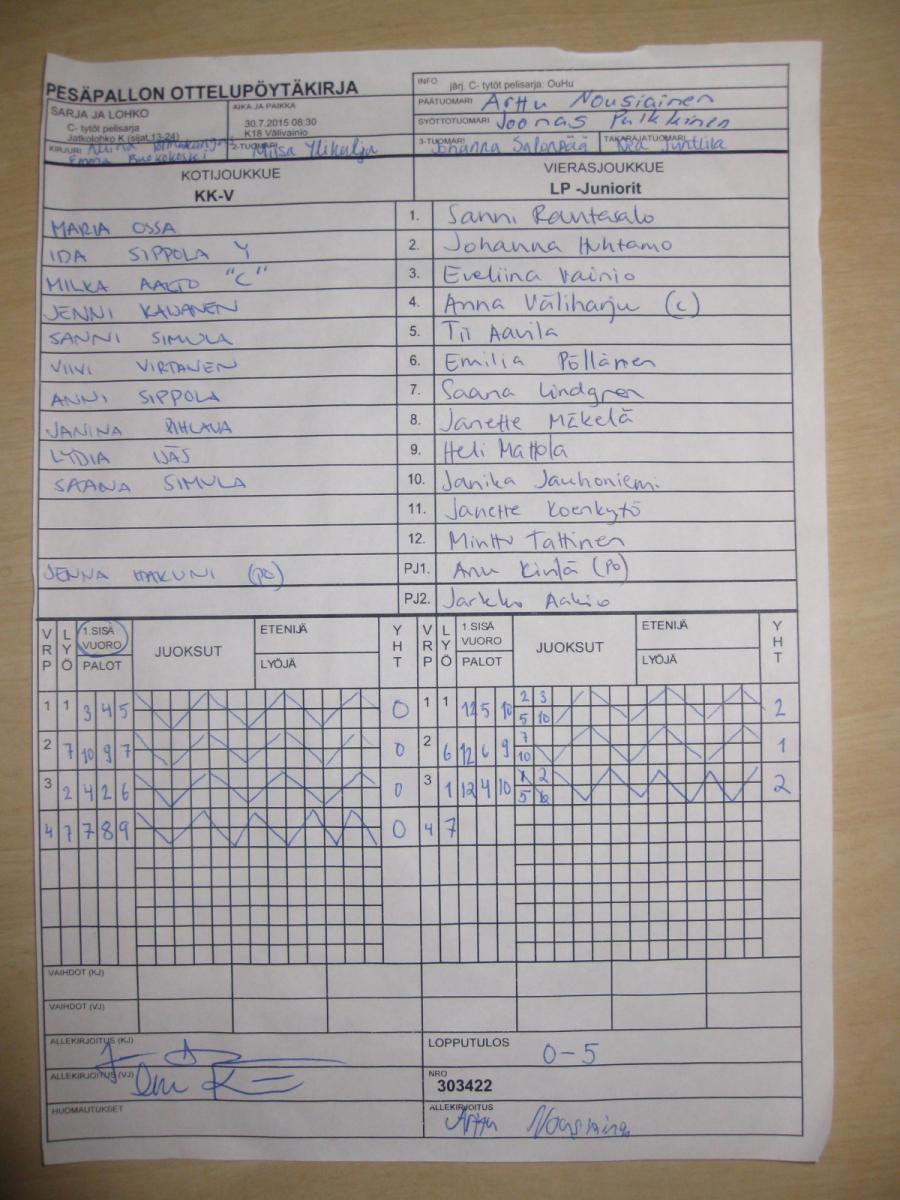 PESÄPALLON OTTELUPÖYTÄKIRJA
INFO järj. C- tytöt pelisarja: OuHu
SARJA JA LOHKO
C- tytöt pelisarja
Jatkolohko K (sijat 13-24)
AIKA JA PAIKKA
30.7.2015 08:30
K18 Välivainio
PÄÄTUOMARI Arttu Nousiainen
SYÖTTÖTUOMARI Joonas Pulkkinen
KIRJURI
Emma
2-TUOMARI Miisa Ylikulju
3-TUOMARI Johanna Salonpää
TAKARAJATUOMARI Nea Junttila
KOTIJOUKKUE
KK-V
VIERASJOUKKUE
LP -Juniorit
MARIA OSSA 1. Sanni Rantasalo
IDA SIPPOLA Y 2. Johanna Huhtamo
MILKA AALTO "C" 3. Eveliina Vainio
JENNI KAUANEN 4. Anna Väliharju (c)
SANNI SIMULA 5. Tii Aavila
VIIVI VIRTANEN 6. Emilia Pöllänen
ANNI SIPPOLA 7. Saana Lindgren
JANINA RIHLAVA 8. Janette Mäkelä
LYDIA IJÄS 9. Heli Mattola
SAANA SIMULA 10. Janika Jauhoniemi
11. Janette Koenkytö
12. Minttu Tattinen
JENNA HAKUNI (PO) PJ1. Anu Kinlä (PO)
PJ2. Jarkko Aakio
VRP LYÖ 1.SISÄ VUORO PALOT JUOKSUT ETENIJÄ LYÖJÄ YHT VRP LYÖ 1.SISÄ VUORO PALOT JUOKSUT ETENIJÄ LYÖJÄ YHT
1 1 3 4 5 0 1 1 12 5 10 2 3 5 10 2
2 7 10 9 7 0 2 6 12 6 9 7 10 1
3 2 4 2 6 0 3 1 12 4 10 1 2 5 6 2
4 7 7 8 9 0 4 7
VAIHDOT (KJ)
VAIHDOT (VJ)
ALLEKIRJOITUS (KJ)
LOPPUTULOS 0-5
ALLEKIRJOITUS (VJ)
NRO
303422
HUOMAUTUKSET
ALLEKIRJOITUS
Arttu Nousiainen